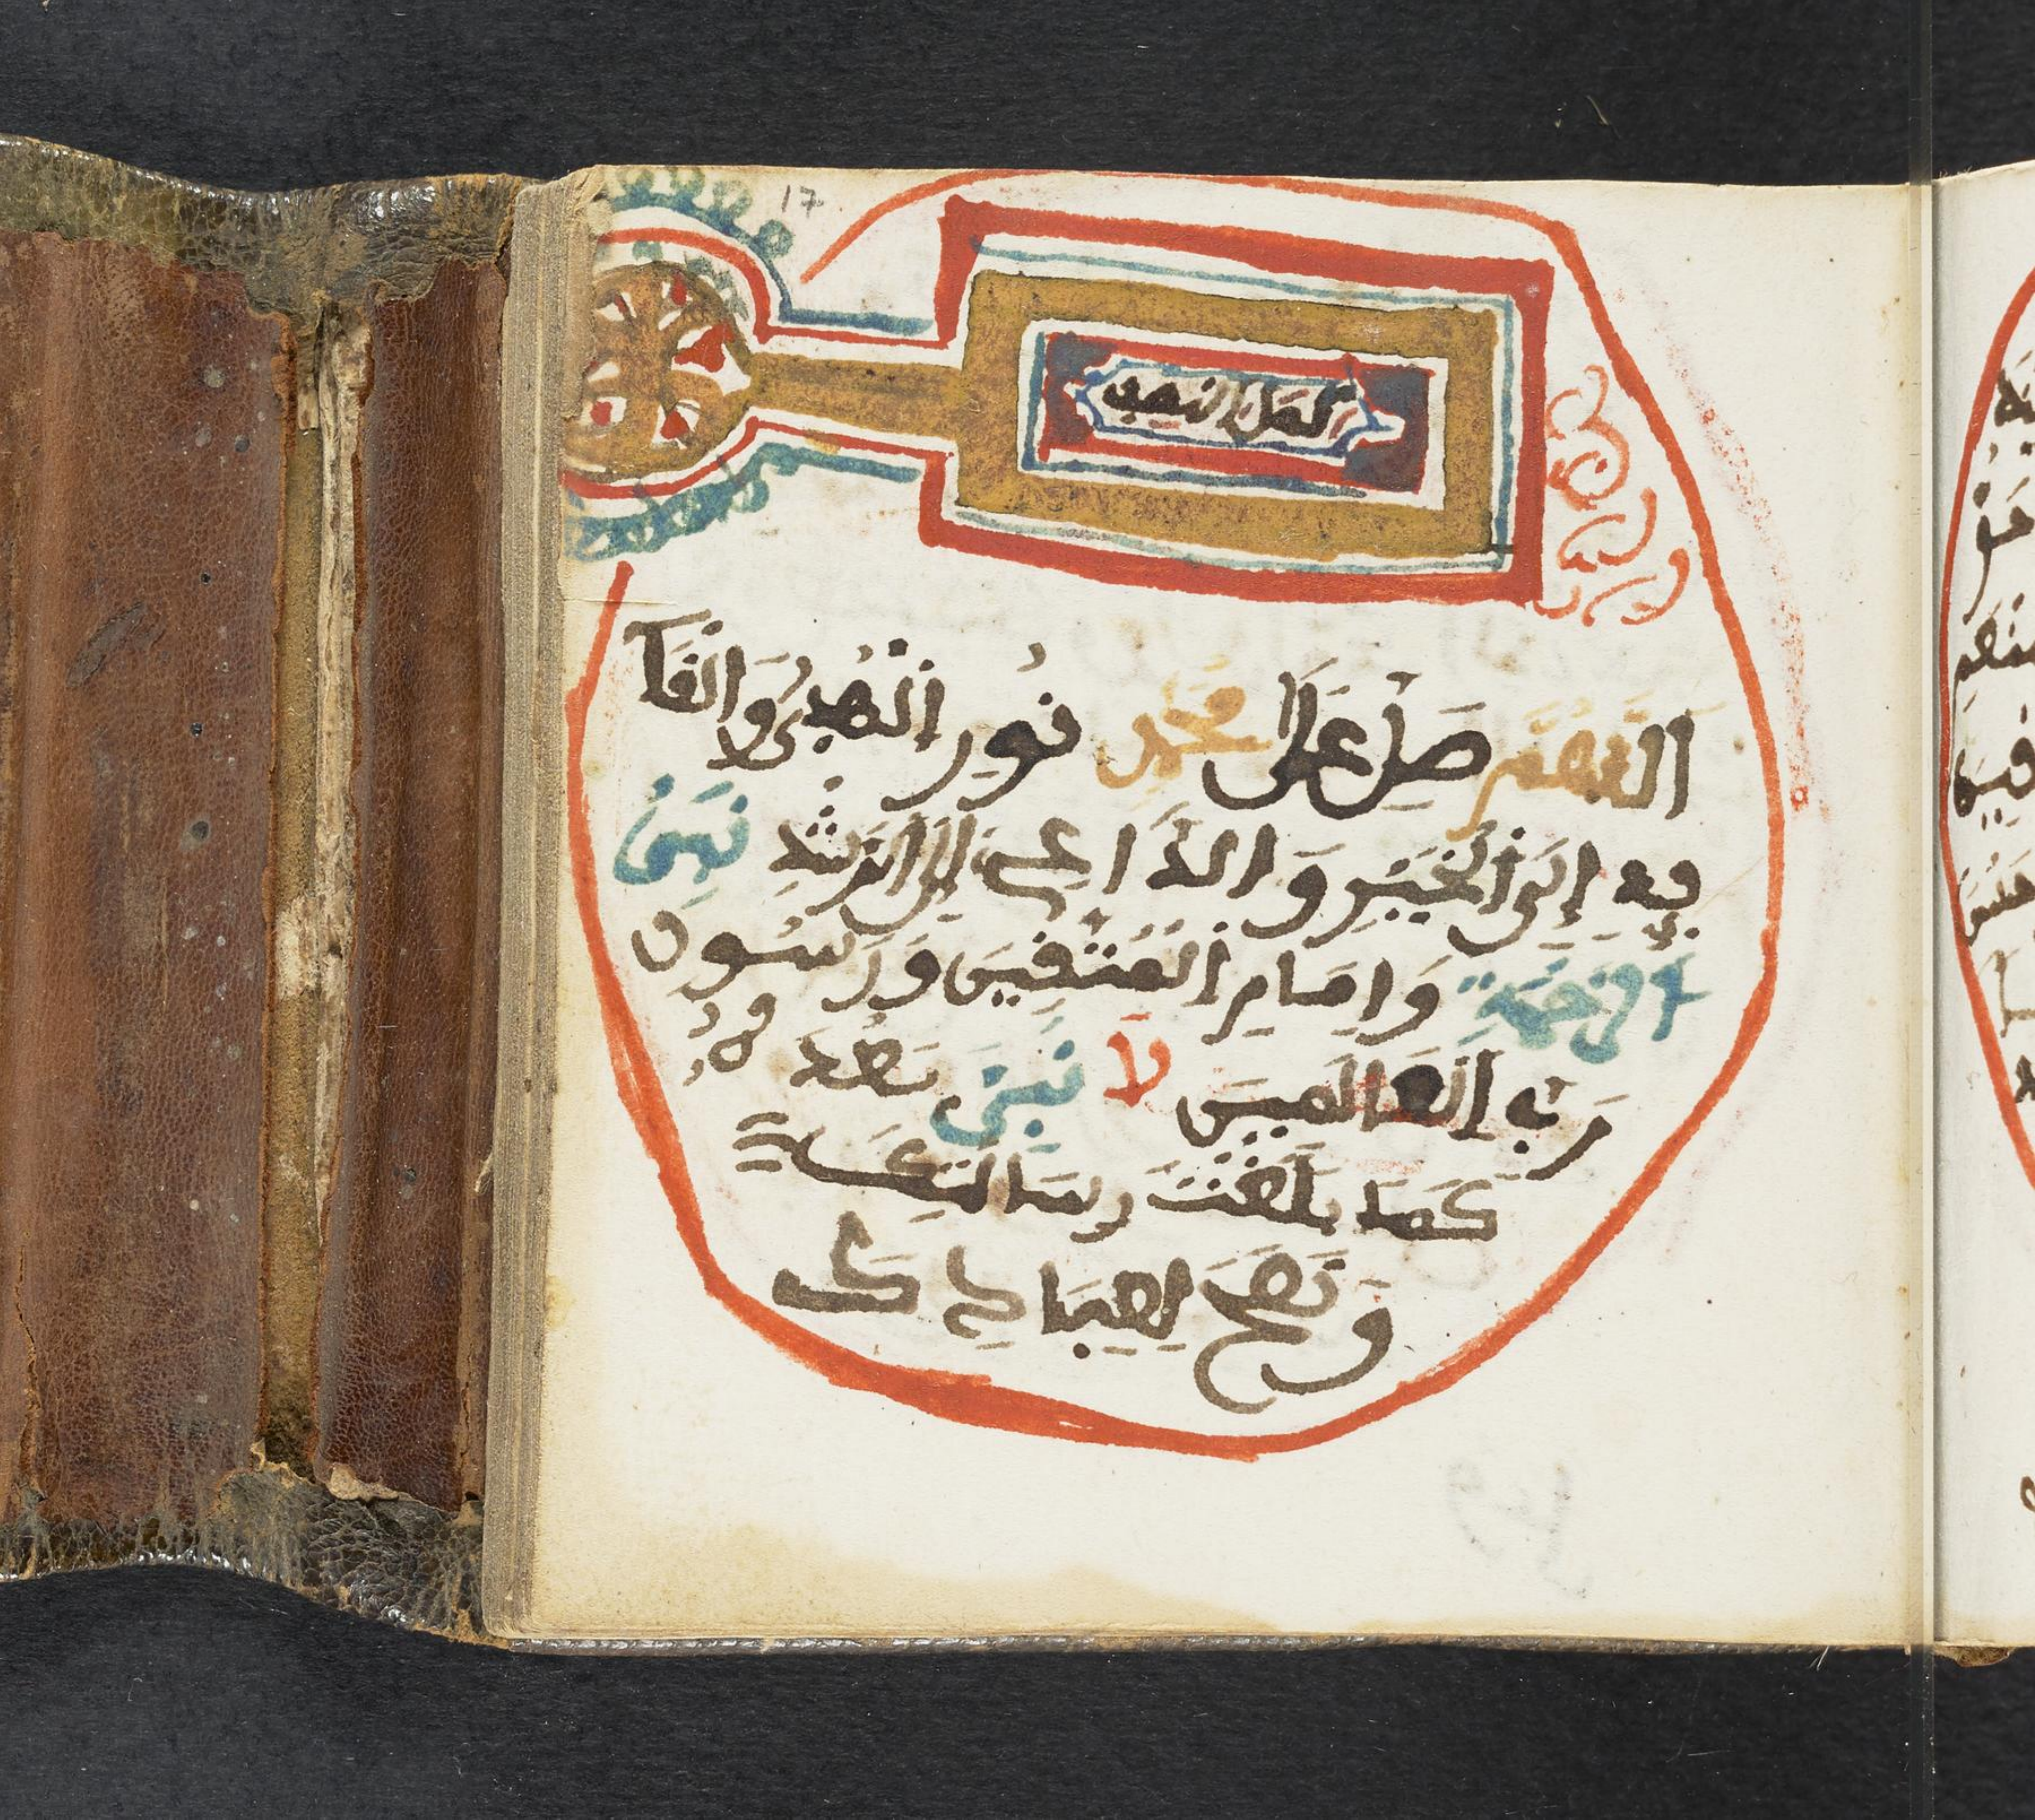 17
كمل النصف
اللَّهُمَّ صَلِّ عَلَى مُحَمَّدٍ نُورِ الْهُدَى وَالْقَا
يِدِ إِلَى الْخَيْرِ وَالدَّاعِي إِلَى الرُّشْدِ نَبِيِّ
الرَّحْمَةِ وَإِمَامِ الْمُتَّقِينَ وَرَسُول
رَبِّ الْعَالَمِينَ لَا نَبِيَّ بَعْدَهُ
كَمَا بَلَّغْتَ رِسَالَتَكَ
وَنَصَحَ لِعِبَادِكَ